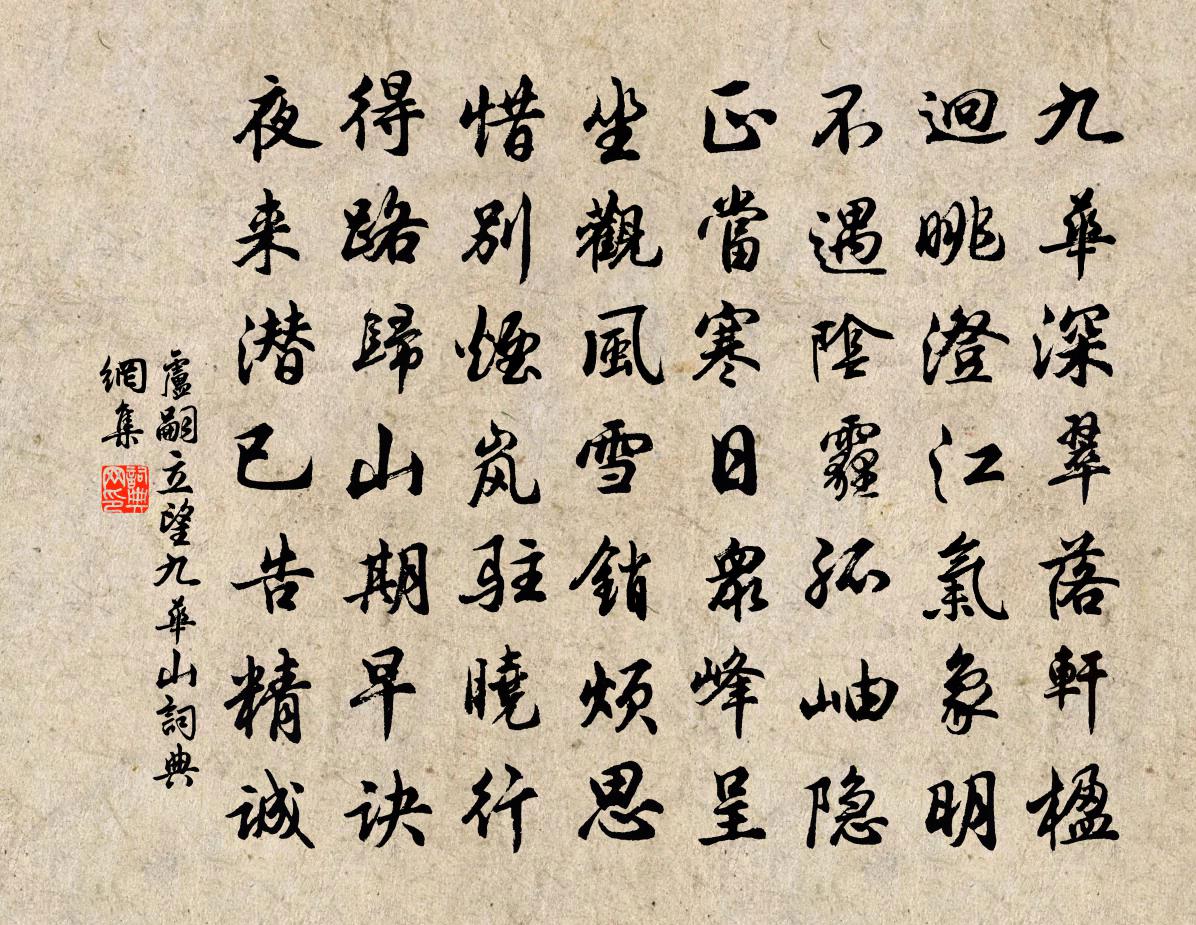 九華深翠落軒楹
迥眺澄江氣象明
不遇陰霾孤岫隐
正當寒日衆峰呈
坐觀風雪銷煩思
惜別煙岚駐曉行
得路歸山期早訣
夜来潜已告精誠
盧嗣立望九華山詞典
網集
詞典
网印